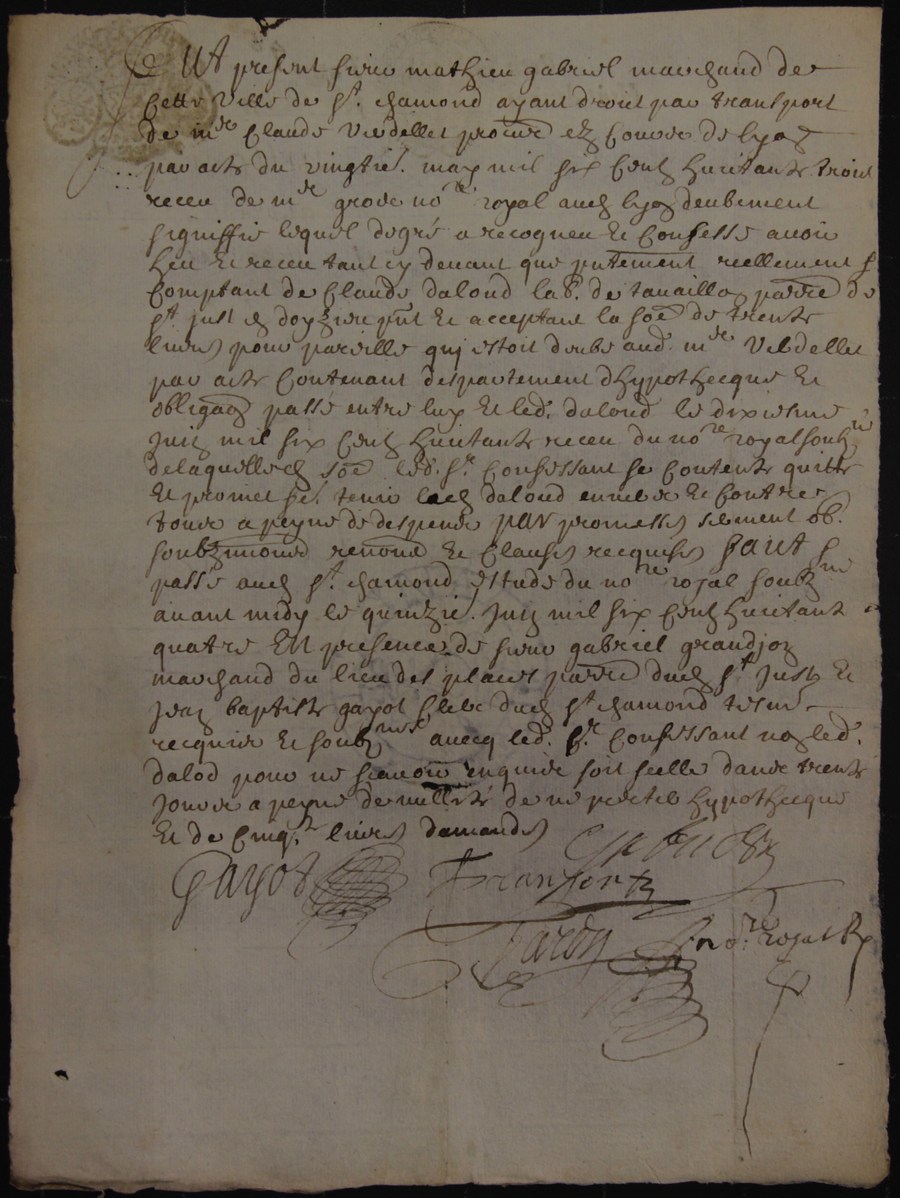 Fut present sieur mathieu gabriel marchand de
cette ville de St. chamond ayant droit par transport
de mre Claude Verdellet procur ez Cours de lyon
par acte du vingtie. may mil six Centz huitante trois
receu de mre grove nore royal aud lyon deubement
signiffié lequel de gré a recogneu et Confessé avoir
heu et receu tant cy devant que pntement reellement
Comptant de Claude dalond lab. de tavaillon parre de
St. just en doyzieu pnt et acceptant la soe de trente
livres pour pareille qui estoit deube aud. mre Verdellet
par acte Contenant despartement dhypothecque et
obligaon passé entre luy et led. dalond le dixiesme
juin mil six Centz huitante receu du nore royal soubzne
de laquelle soe led. Sr. Confessant se Contente quitte
et promet fe. tenir led dalond envers et Contre
tous a peyne de despens par promesses serment ob.
soubzmions renons et Clauses recquises faict
passé aud St. chamond estude du nore royal soubzne
avant midy le quinzie. juin mil six Centz huitant
quatre En presence de sieur gabriel grandjon
marchand du lieu des places parre dud St. Just et
jean baptiste gayot Clerc dud St. chamond tesms
recquis et soubznes avecq led. Sr. Confessant non led.
dalod pour ne scavoir enquis soit scellé dans trente
jours a peyne de nullité de ne perte hypothecque
et de Cinqte livres damandes
Gayot
Granjon
Tardy nore royal R